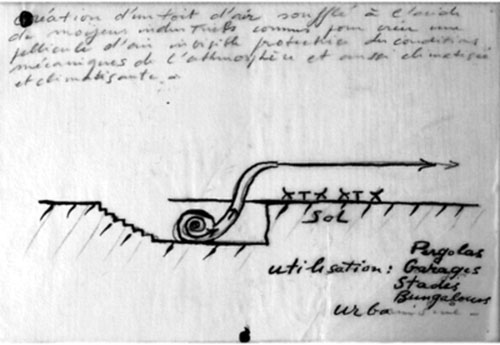 Création d'un toit d'air soufflé à l'aide
de moyens industriels connus pour créer une
pellicule d'air invisible protectrice des conditions
mécaniques de l'athmosphère et aussi climatisée
et climatisante.
SOL
Pergolas
utilisation: Garages
Stades
Bungalows
Urbanisme